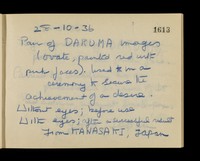 25-10-36
1613
Pair of DARUMA images
(ovate, painted red with
pink faces). Used in a
ceremony to secure the
achievement of a desire.
Without eyes; before use
With eyes; after a successful result
From KANASAKI, Japan